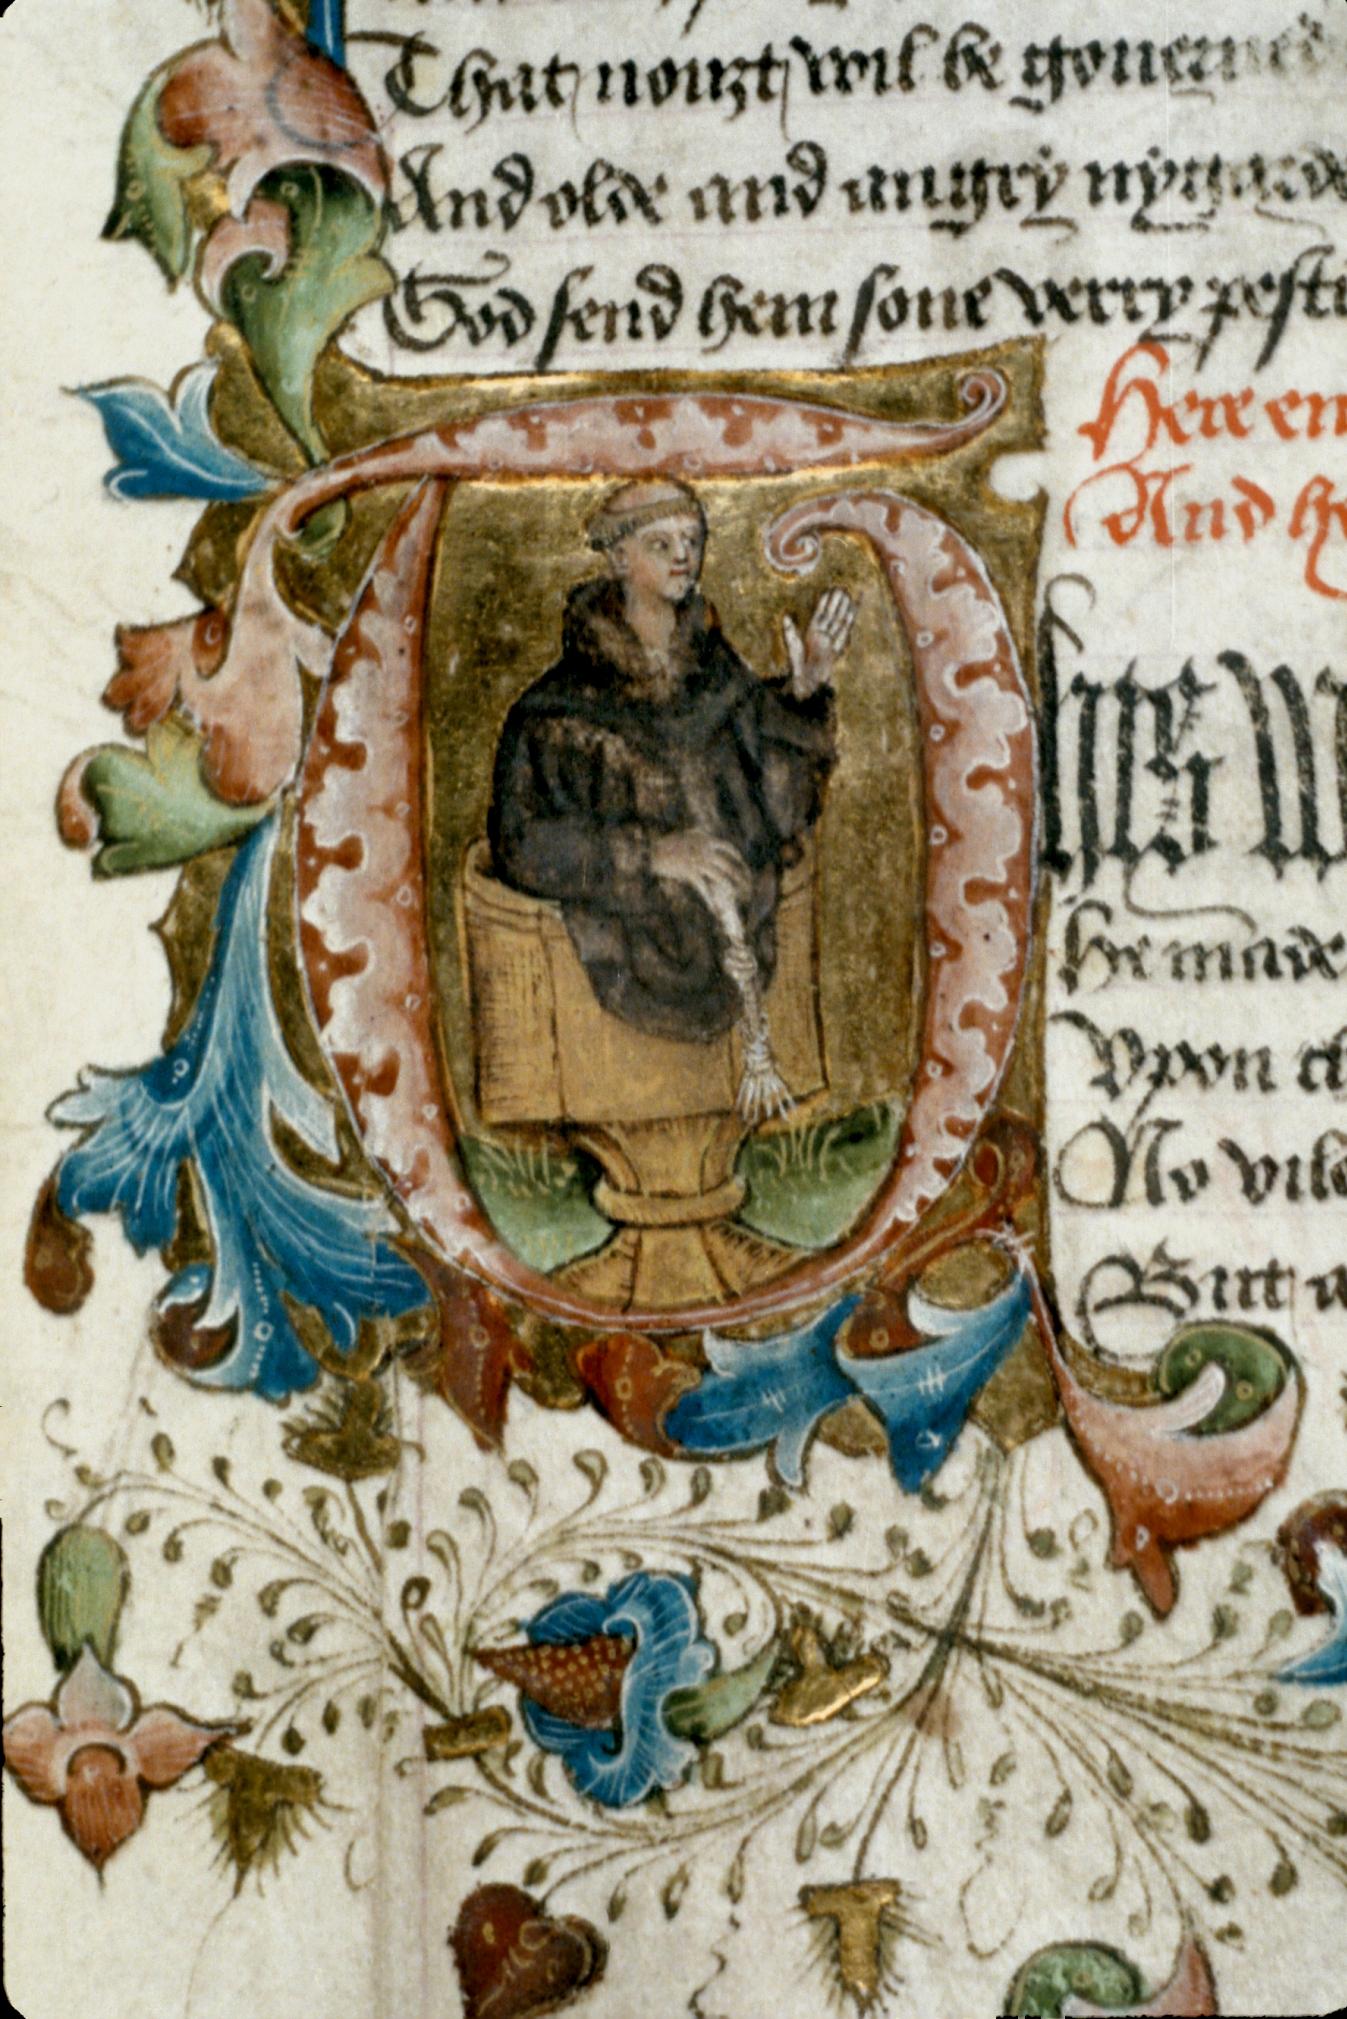 That nouzt wil be gouerned
And olde and angry nygarde
God send hem sone verry pesti
Here en
And he
This w
He made
Vpon ch
No vile
But a